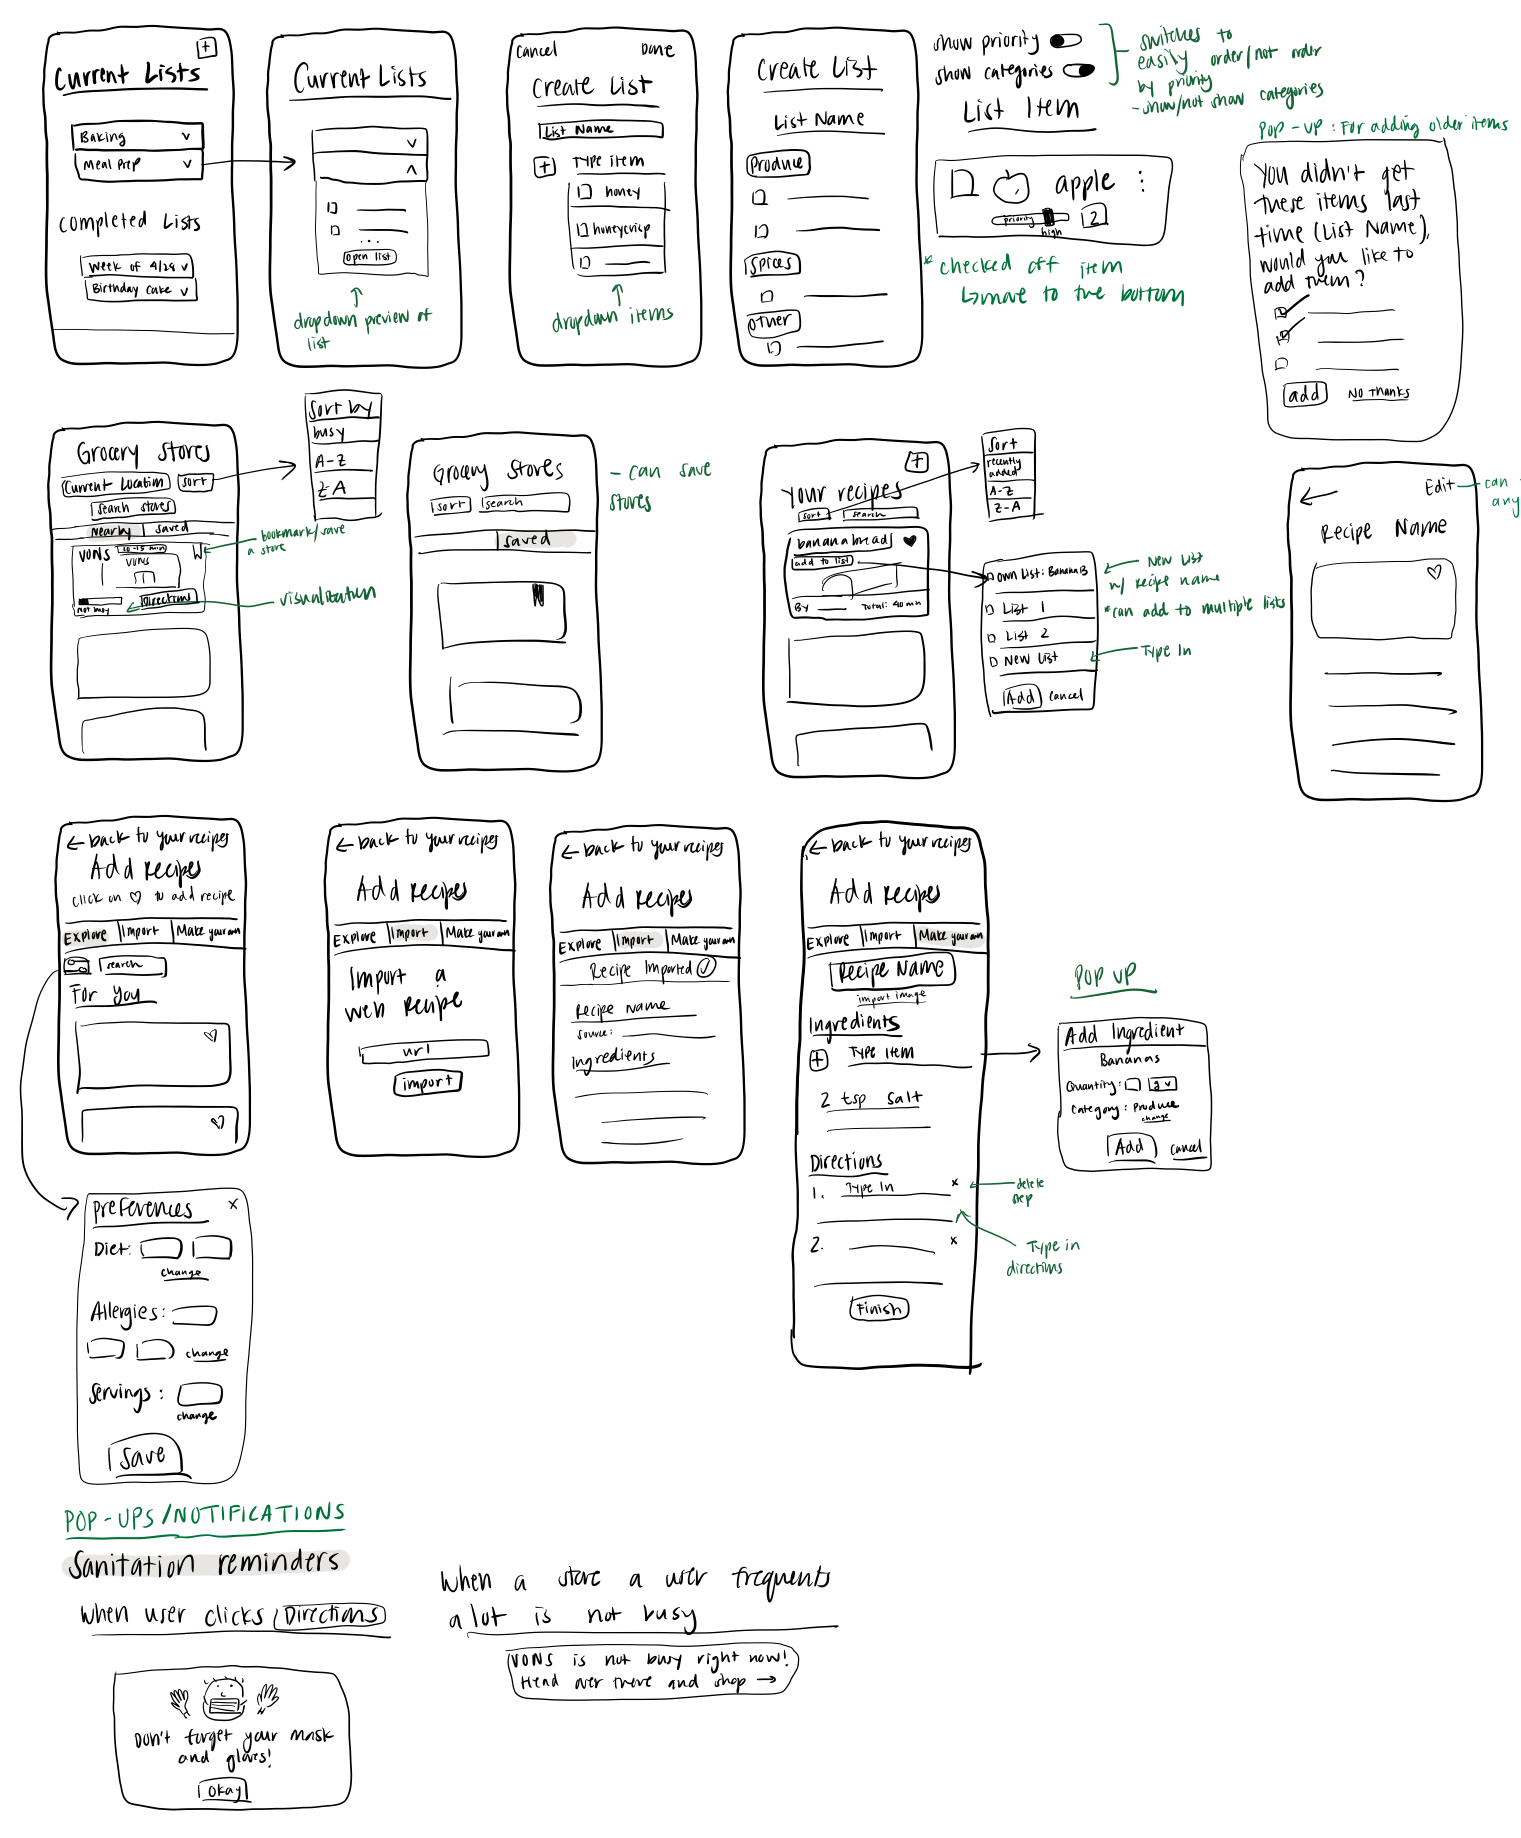 +
Current Lists
Baking v
Meal Prep v
Completed Lists
Week of 4/28 v
Birthday Cake v
Current Lists
v
^
...
open list
dropdown preview of
list
Cancel Done
Create List
List Name
+ Type item
honey
honeycrisp
dropdown items
Create List
List Name
Produce
Spices
Other
show priority
show categories
switches to
easily order/not order
by priority
- show/not show categories
List Item
apple
priority 2
high
* checked off item
↳ move to the bottom
POP-UP: For adding older items
You didn't get
these items last
time (List Name),
would you like to
add them?
add No Thanks
Grocery Stores
Current Location sort
search stores
Nearby saved
VONS 10-15 min
VONS
Not busy Directions
bookmark/save
a store
visualization
Sort by
busy
A-Z
Z-A
Grocery Stores
sort search
saved
- can save
stores
+
Your recipes
sort search
banana bread
add to list
By Total: 40 min
Sort
recently
added
A-Z
Z-A
own List: Banana B
List 1
List 2
New List
Add Cancel
New List
w/ recipe name
*can add to multiple lists
Type In
←
Edit
- can
any
Recipe Name
← back to your recipes
Add Recipes
click on ♡ to add recipe
Explore Import Make your own
search
For You
← back to your recipes
Add Recipes
Explore Import Make your own
Import a
web Recipe
url
import
← back to your recipes
Add Recipes
Explore Import Make your own
Recipe Imported ✓
Recipe Name
Source:
Ingredients
← back to your recipes
Add Recipes
Explore Import Make your own
Recipe Name
import image
Ingredients
+ Type Item
2 tsp salt
Directions
1. Type In x
2. x
Finish
delete
step
Type in
directions
POP UP
Add Ingredient
Bananas
Quantity: g v
Category: Produce
change
Add Cancel
Preferences x
Diet:
change
Allergies:
change
Servings:
change
Save
POP-UPS/NOTIFICATIONS
Sanitation reminders
When user clicks Directions
Don't forget your mask
and gloves!
Okay
When a store a user frequents
a lot is not busy
VONS is not busy right now!
Head over there and shop →